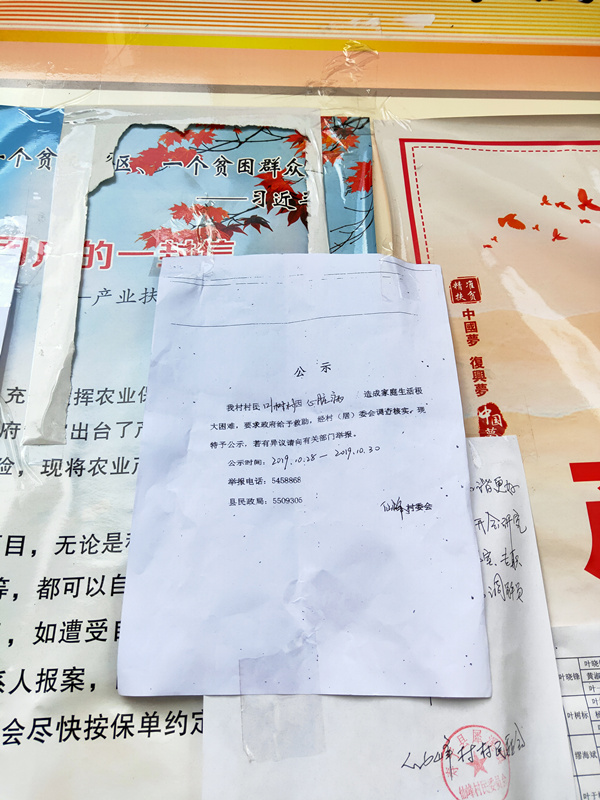 一个贫
区、一个贫困群众
——习近平
的一封信
产业扶
精准
扶贫
中國夢 復興夢
中国
公 示
我村村民叶树标因心脏病 造成家庭生活极
大困难，要求政府给予救助，经村（居）委会调查核实，现
特予公示，若有异议请向有关部门举报。
公示时间：2019.10.28 — 2019.10.30
举报电话：5458868
县民政局：5509305
仙峰村委会
充
挥农业保
府
出台了产
险，现将农业产
项目，无论是
等，都可以自
，如遭受
人报案，
会尽快按保单约定
仙峰村村民委会
叶晓锋
叶树标
缪海斌